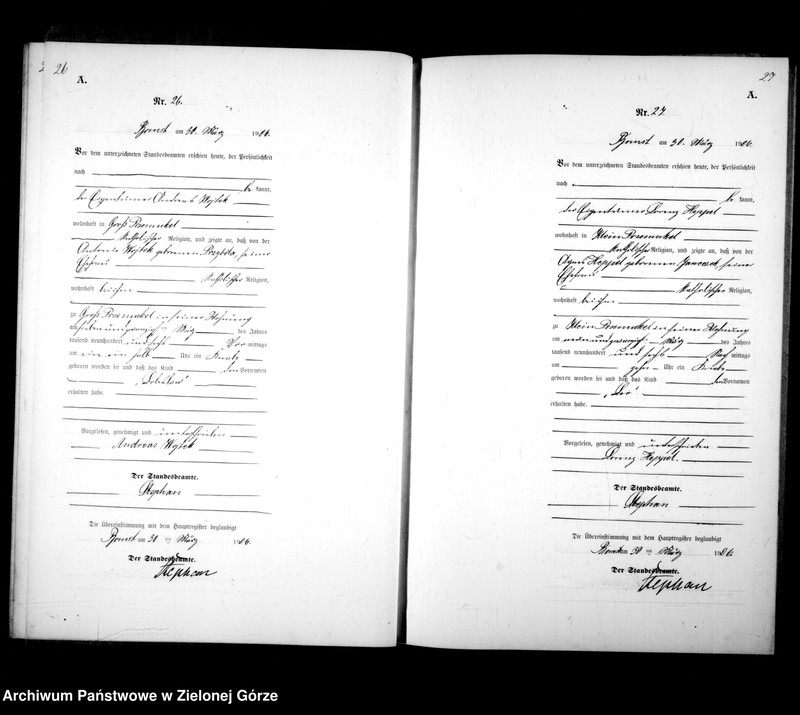 26
A.
Nr. 26.
Bomst am 30. März 1906.
Vor dem unterzeichneten Standesbeamten erschien heute, der Persönlichkeit
nach
be kannt,
der Eigentümer Andreas Wojtek
wohnhaft in Groß Posemukel
katholischer Religion, und zeigte an, daß von der
Antonie Wojtek geborenen Przybila, seiner
Ehefrau
katholischer Religion,
wohnhaft bei ihm
zu Groß Posemukel in seiner Wohnung
am siebenundzwanzigsten März des Jahres
tausend neunhundert und sechs Vor mittags
um ein ein halb Uhr ein Knabe
geboren worden sei und daß das Kind den Vornamen
„Boleslaw“
erhalten habe.
Vorgelesen, genehmigt und unterschrieben
Andreas Wojtek
Der Standesbeamte.
Stephan
Die Übereinstimmung mit dem Hauptregister beglaubigt
Bomst am 30 ten März 1906.
Der Standesbeamte.
Stephan
27
A.
Nr. 27.
Bomst am 30. März 1906.
Vor dem unterzeichneten Standesbeamten erschien heute, der Persönlichkeit
nach
be kannt,
der Eigentümer Lorenz Heppel
wohnhaft in Klein Posemukel
katholischer Religion, und zeigte an, daß von der
Agnes Heppel geborenen Janeczek, seiner
Ehefrau
katholischer Religion,
wohnhaft bei ihm
zu Klein Posemukel in seiner Wohnung
am März des Jahres
tausend neunhundert und sechs Nach mittags
um zehn Uhr ein Knabe
geboren worden sei und daß das Kind den Vornamen
„Leo“
erhalten habe.
Vorgelesen, genehmigt und unterschrieben
Lorenz Heppel.
Der Standesbeamte.
Stephan
Die Übereinstimmung mit dem Hauptregister beglaubigt
Bomst am 30 ten März 1906.
Der Standesbeamte.
Stephan
Archiwum Państwowe w Zielonej Górze